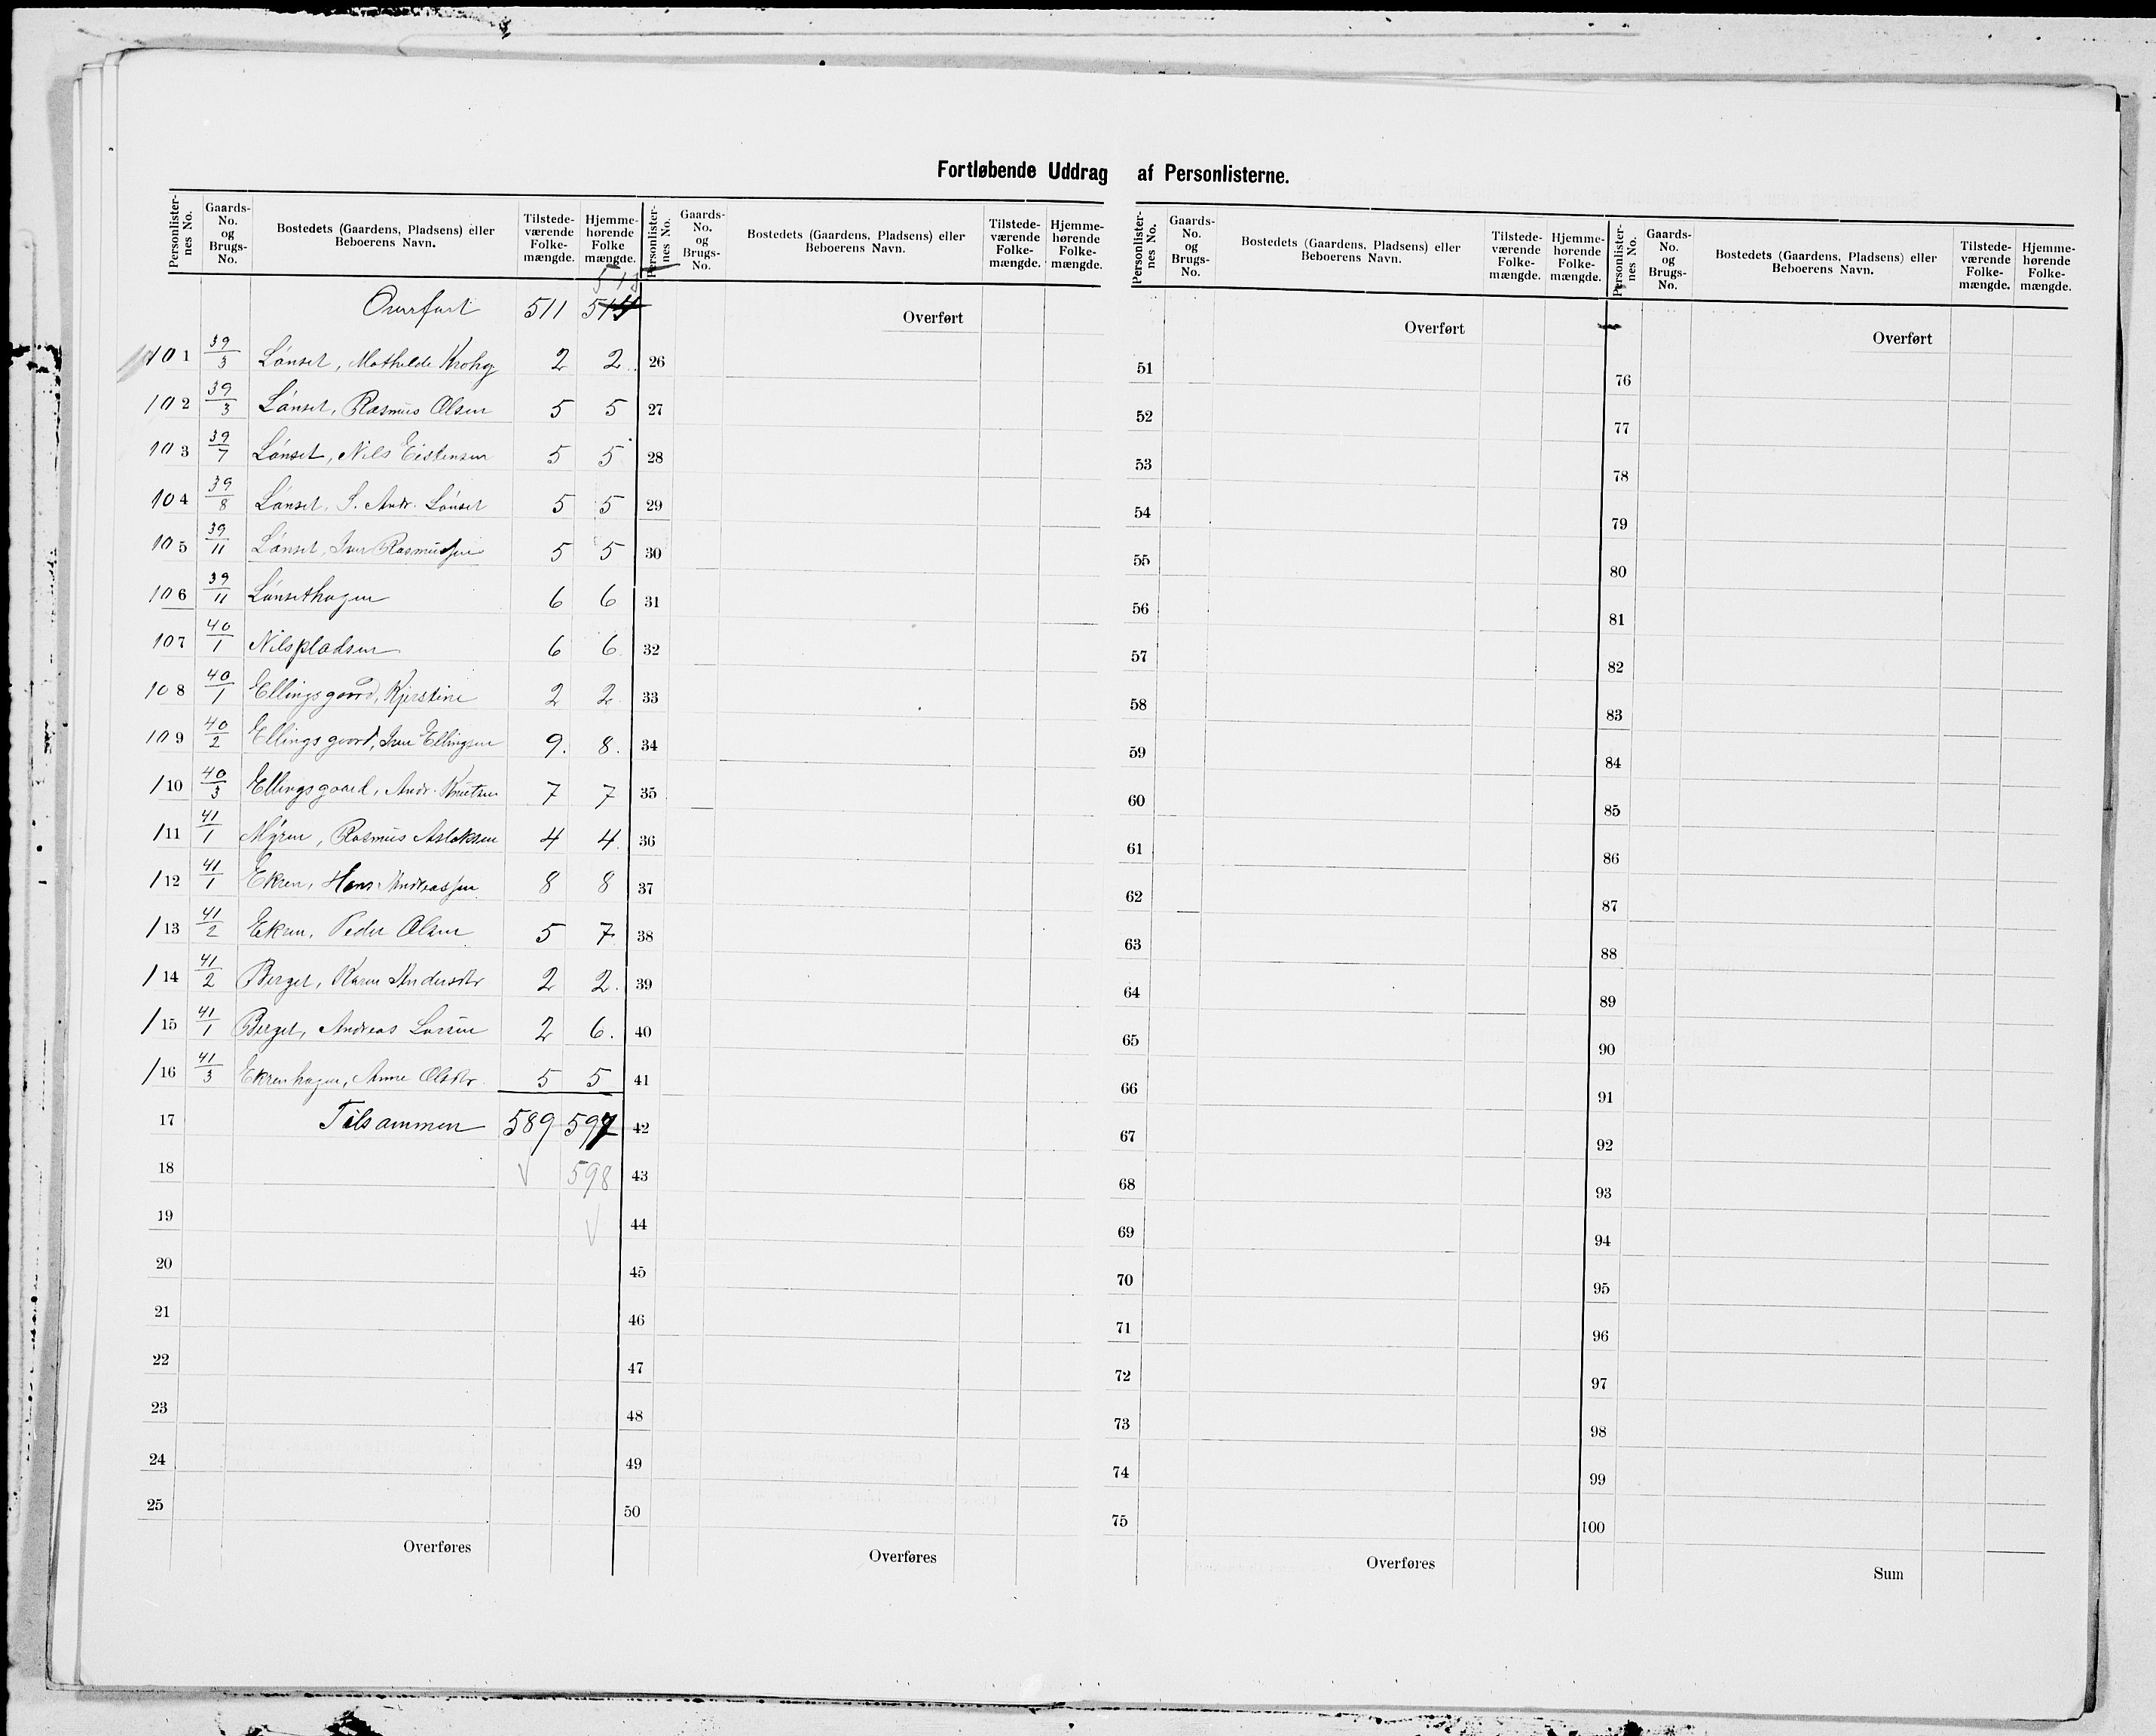 Fortløbende Uddrag af Personlisterne.
Personlisternes No. | Gaards-No. og Brugs-No. | Bostedets (Gaardens, Pladsens) eller Beboerens Navn. | Tilstedeværende Folkemængde. | Hjemmehørende Folkemængde.
Overført 511 514 513
101 39/3 Lønset, Mathilde Krohg 2 2
102 39/3 Lønset, Rasmus Olsen 5 5
103 39/7 Lønset, Nils Eistensen 5 5
104 39/8 Lønset, S. Andr. Lønset 5 5
105 39/11 Lønset, Iver Rasmussen 5 5
106 39/11 Lønsethagen 6 6
107 40/1 Nilspladsen 6 6
108 40/1 Ellingsgaard, Kjerstine 2 2
109 40/2 Ellingsgaard, Iver Ellingsen 9. 8.
110 40/3 Ellingsgaard, Andr. Knutsen 7 7
111 41/1 Myren, Rasmus Aslaksen 4 4
112 41/1 Ekren, Hans Andreassen 8 8
113 41/2 Ekren, Peder Olsen 5 7
114 41/2 Berget, Karen Andersdtr 2 2.
115 41/1 Berget, Andreas Larsen 2 6.
116 41/3 Ekrenhagen, Anne Olsdtr. 5 5
17 Tilsammen 589 597
18 598
19
20
21
22
23
24
25
Overføres
Personlisternes No. | Gaards-No. og Brugs-No. | Bostedets (Gaardens, Pladsens) eller Beboerens Navn. | Tilstedeværende Folkemængde. | Hjemmehørende Folkemængde.
Overført
26
27
28
29
30
31
32
33
34
35
36
37
38
39
40
41
42
43
44
45
46
47
48
49
50
Overføres
Personlisternes No. | Gaards-No. og Brugs-No. | Bostedets (Gaardens, Pladsens) eller Beboerens Navn. | Tilstedeværende Folkemængde. | Hjemmehørende Folkemængde.
Overført
51
52
53
54
55
56
57
58
59
60
61
62
63
64
65
66
67
68
69
70
71
72
73
74
75
Overføres
Personlisternes No. | Gaards-No. og Brugs-No. | Bostedets (Gaardens, Pladsens) eller Beboerens Navn. | Tilstedeværende Folkemængde. | Hjemmehørende Folkemængde.
Overført
76
77
78
79
80
81
82
83
84
85
86
87
88
89
90
91
92
93
94
95
96
97
98
99
100
Sum